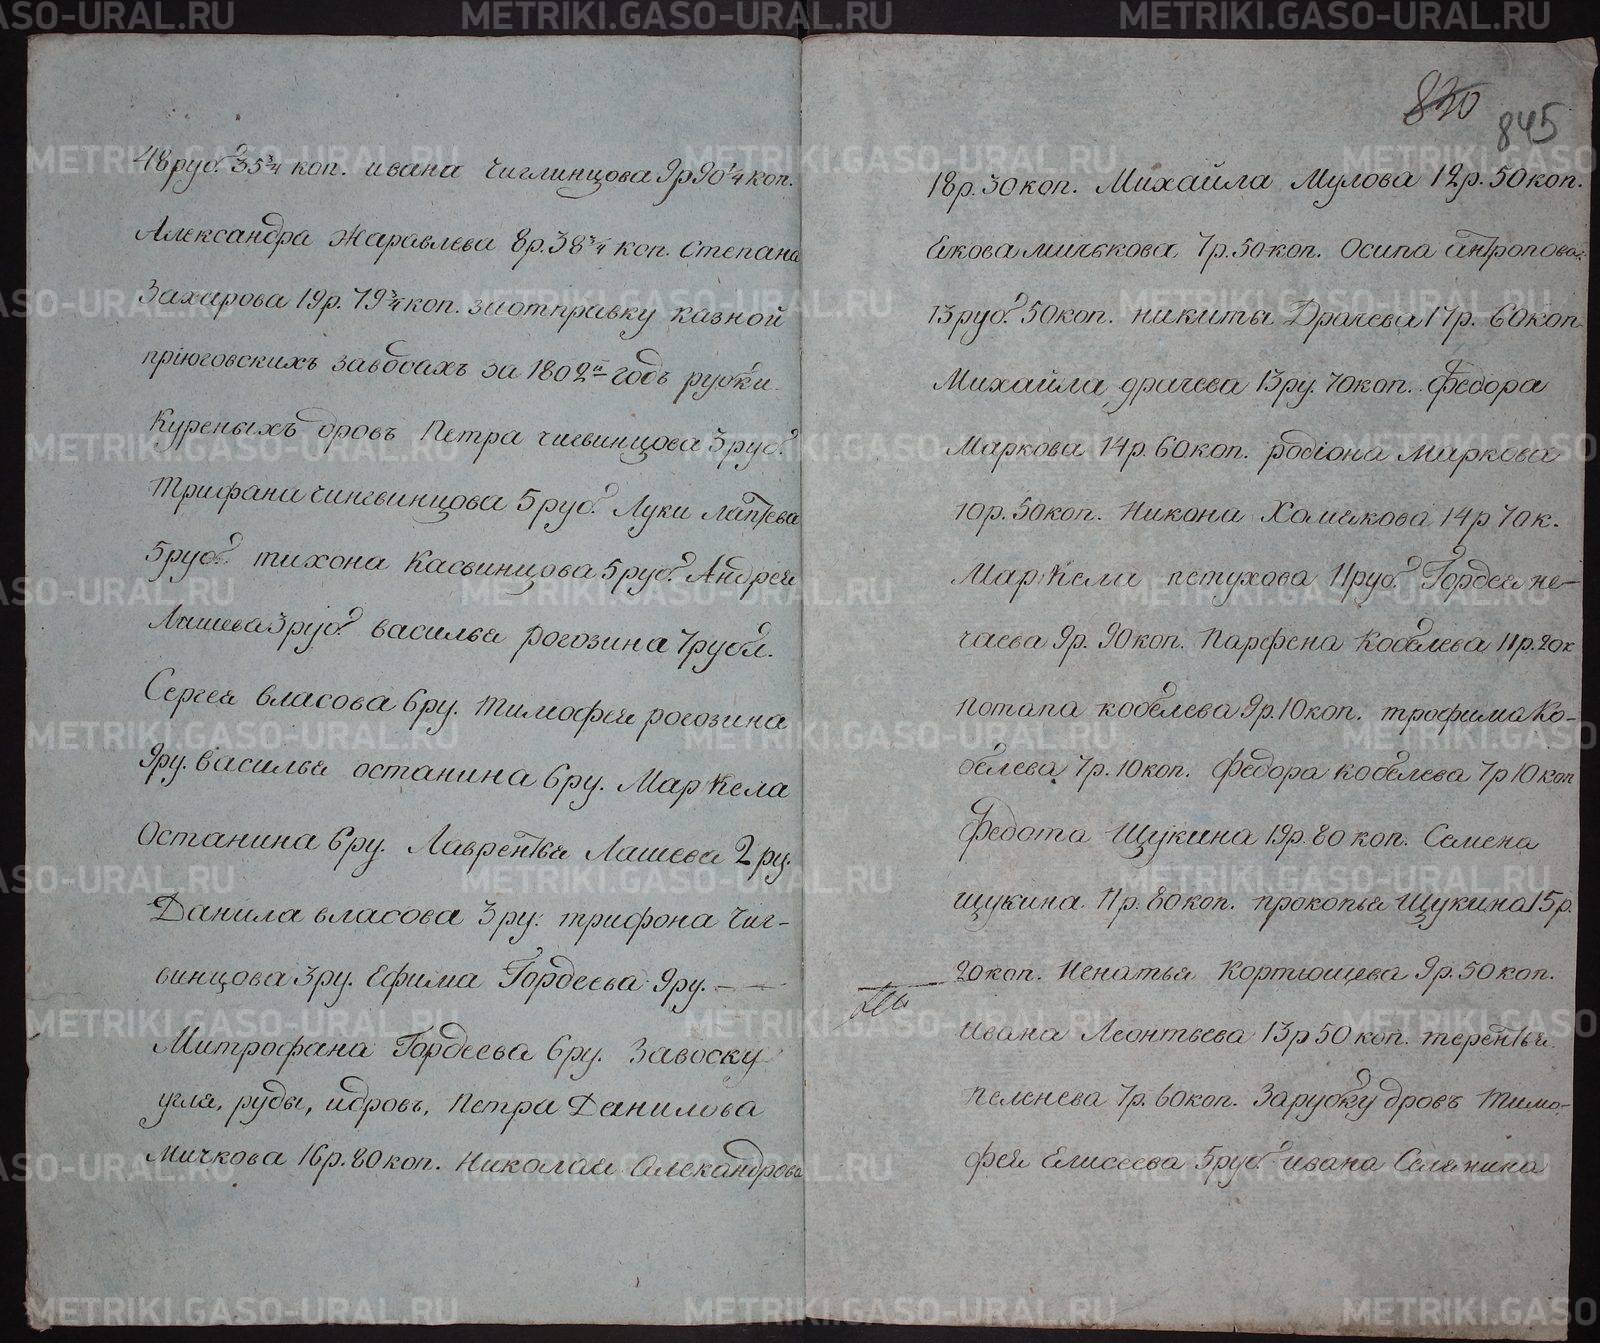 48 руб. 35 3/4 коп. ивана чиглинцова 9р 90 1/4 коп.
Александра Жаравлева 8р. 38 3/4 коп. Степана
Захарова 19р. 79 3/4 коп. заотправку казной
пріюговскихъ заводахъ за 1802й годъ рубки
Куреныхъ дровъ Петра чигвинцова 3 руб.
Трифана чингвинцова 5 руб. Луки лаптева
5 руб. тихона Касвинцова 5 руб. Андрея
Лашева 3 руб. василья рогозина 7 рубл.
Сергея власова 6 ру. тимофея рогозина
9 ру. василья останина 6 ру. Маркела
Останина 6 ру. Лаврентья Лашева 2 ру.
Данила власова 3 ру. трифона чиг-
винцова 3 ру. Ефима Гордеева 9 ру.
Митрофана Гордеева 6 ру. Завоску
угля, руды, идровъ, Петра Данилова
Мичкова 16 р. 80 коп. Николая Александрова
830
845
18 р. 30 коп. Михайла Мулова 12 р. 50 коп.
Екова мичькова 7 р. 50 коп. Осипа антропова
13 руб. 50 коп. никиты Драчева 17 р. 60 коп
Михайла драчева 13 ру. 70 коп. Федора
Маркова 14 р. 60 коп. родіона Маркова
10 р. 50 коп. Никона Хомичкова 14 р 70 к.
Маркела петухова 11 руб. Гордея не-
чаева 9 р. 90 коп. Парфена Кобелева 11 р. 20 к
потапа кобелева 9 р. 10 коп. трофима Ко-
белева 7 р. 10 коп. Федора кобелева 7 р 10 коп
Федота Щукина 19 р. 80 коп. Семена
щукина 11 р. 80 коп. прокопья Щукина 15 р.
20 коп. Игнатья Кортюшева 9 р. 50 коп.
ивана Леонтьева 13 р 50 коп. терентья
пеленева 7 р. 60 коп. Зарубку дровъ тимо-
фея Елисеева 5 руб. ивана Селянина
METRIKI.GASO-URAL.RU